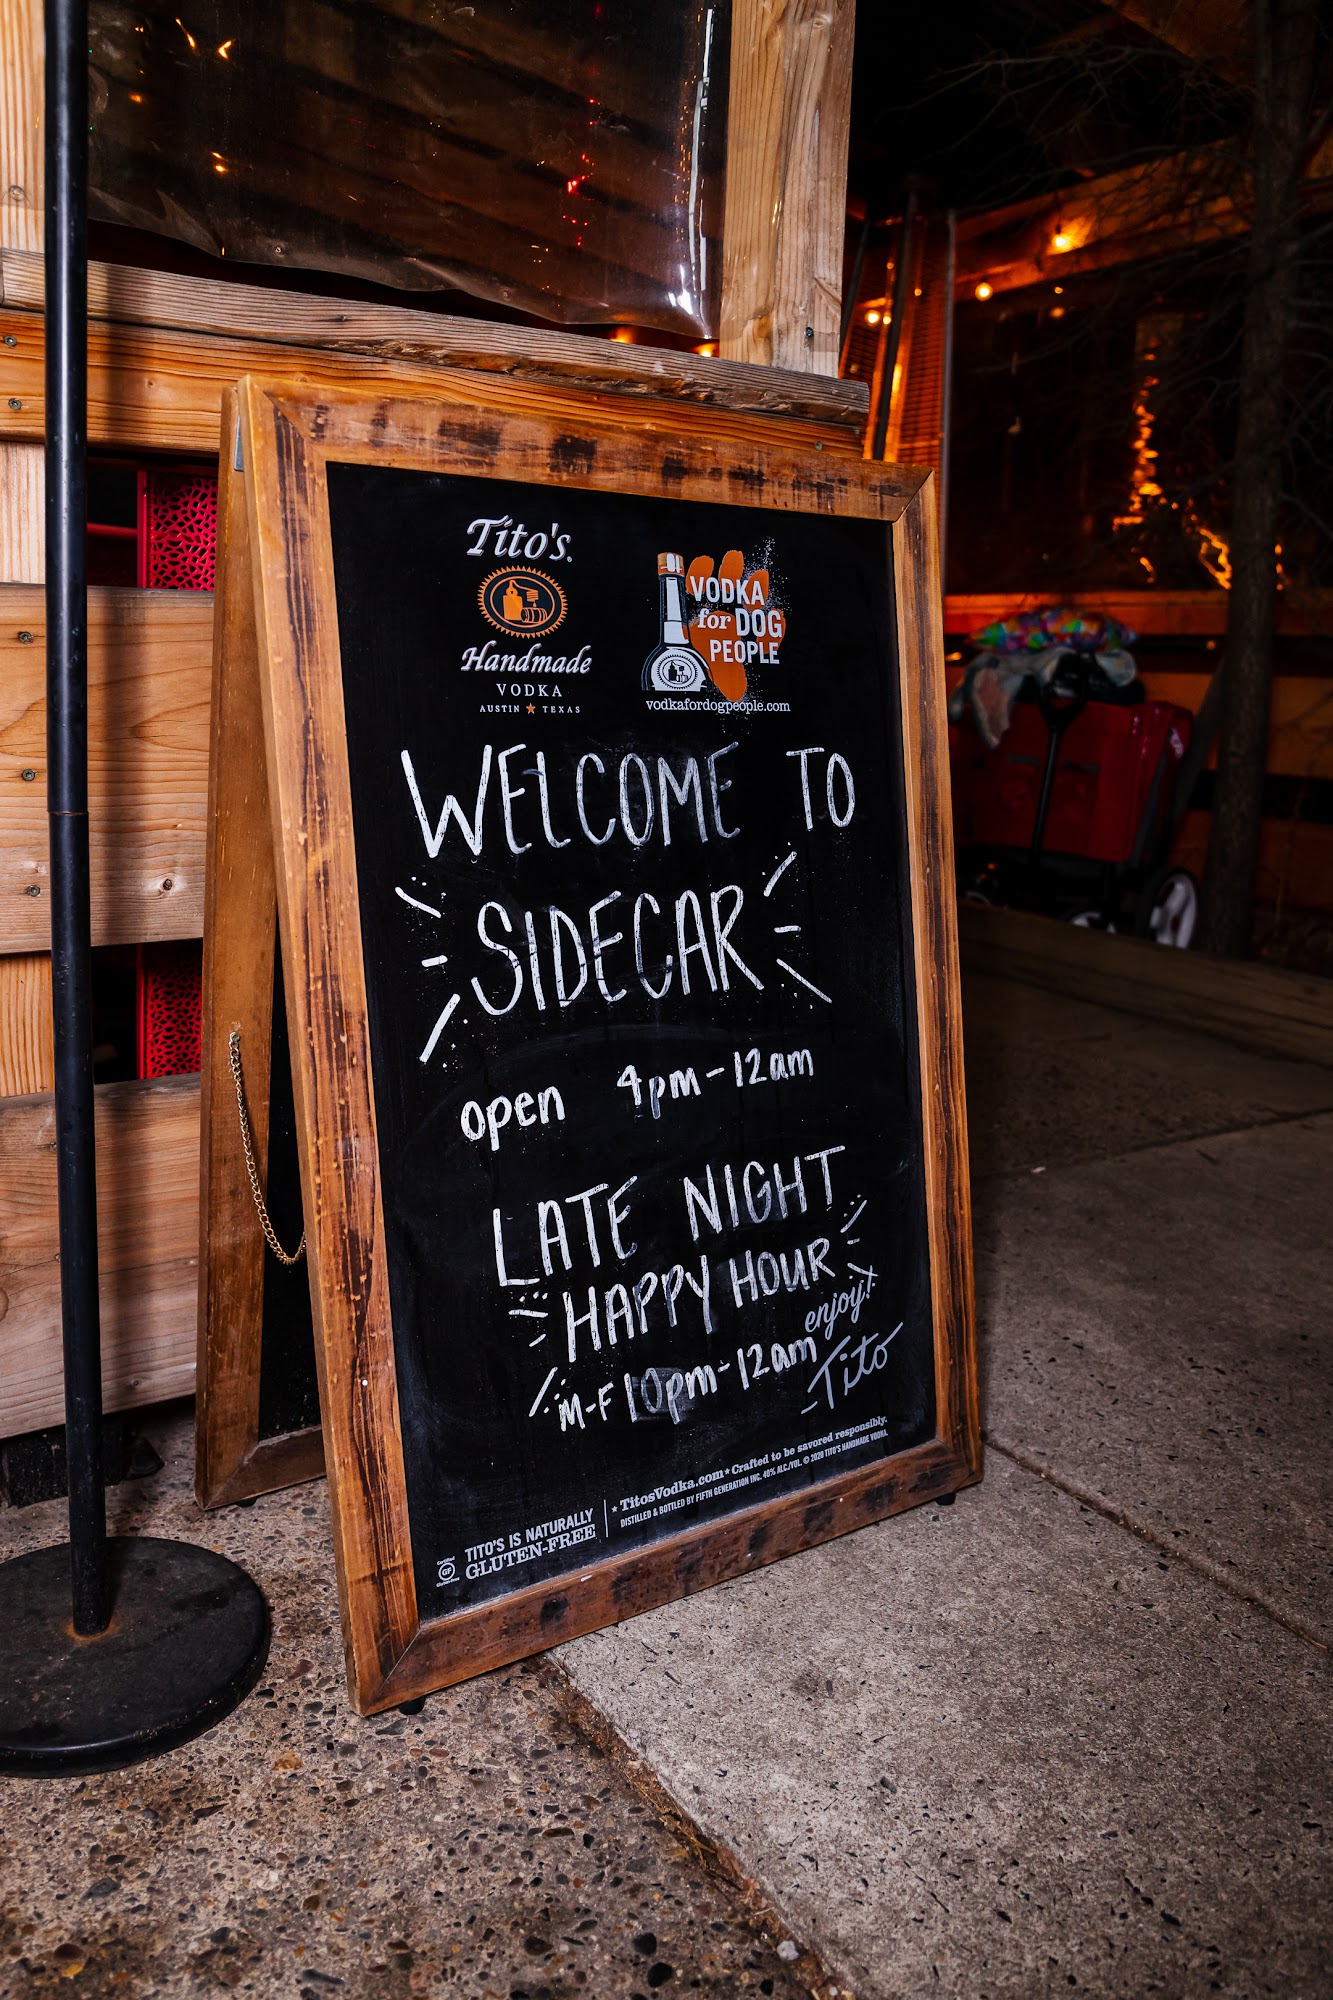 Tito's
Handmade
VODKA
AUSTIN ★ TEXAS
VODKA
for DOG
PEOPLE
vodkafordogpeople.com
WELCOME TO
SIDECAR
open 4pm-12am
LATE NIGHT
HAPPY HOUR
M-F 10pm-12am
enjoy!
-Tito
Certified
GF
Gluten-Free
TITO'S IS NATURALLY
GLUTEN-FREE
★ TitosVodka.com ★ Crafted to be savored responsibly.
DISTILLED & BOTTLED BY FIFTH GENERATION INC. 40% ALC./VOL. © 2020 TITO'S HANDMADE VODKA.